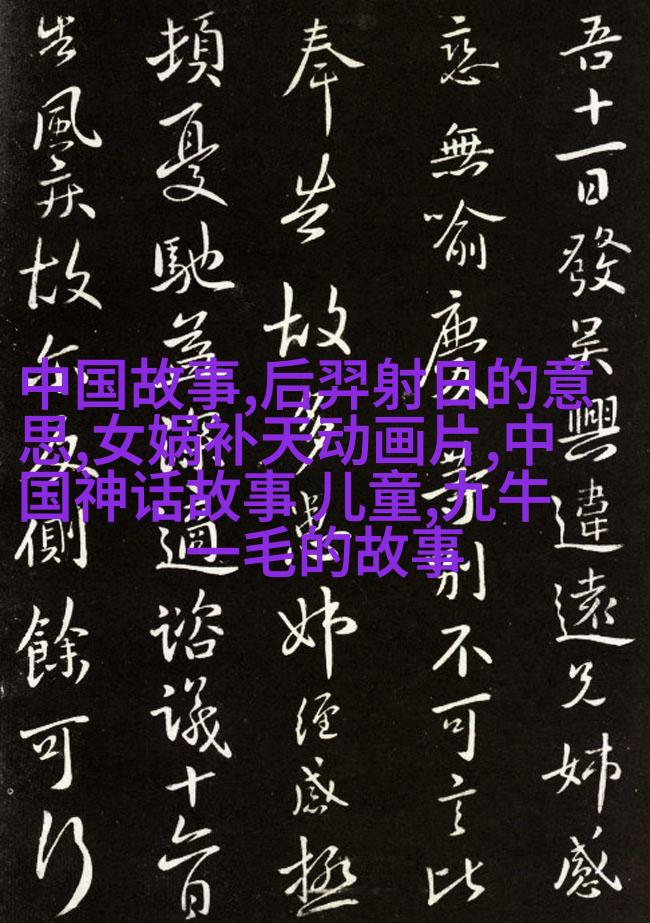 中国故事,后羿射日的意
思,女娲补天动画片,中
国神话故事 儿童,九牛
一毛的故事
吾十一日發吴興違遠兄姊感
戀無喻慶等別不可言比
奉告故多患姊經感極
頓憂馳益深適諮議十六日
告風疾故側餘可行